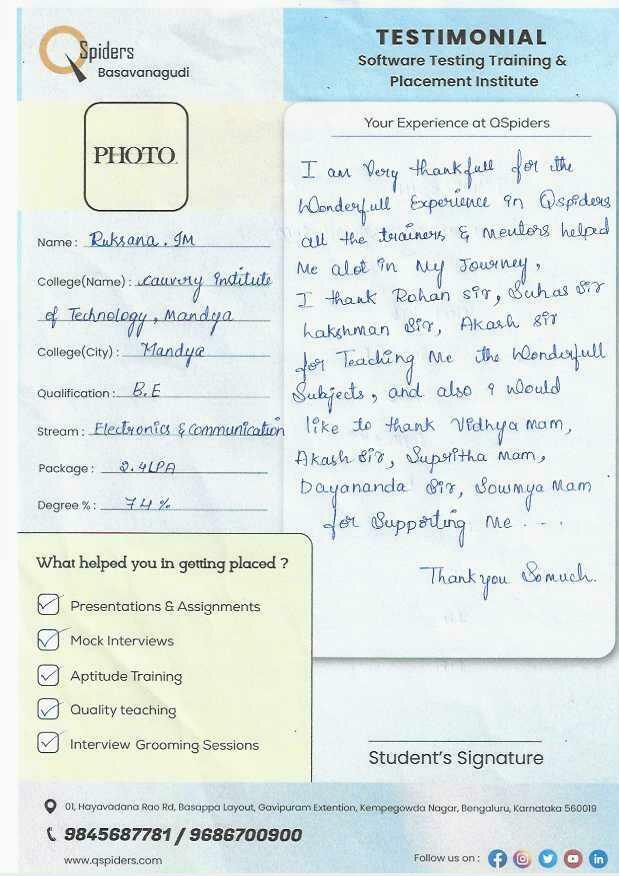 QSpiders
Basavanagudi
TESTIMONIAL
Software Testing Training &
Placement Institute
PHOTO
Name : Ruksana. IM
College(Name) : Cauvery Institute
of Technology, Mandya
College(City) : Mandya
Qualification : B.E
Stream : Electronics & Communication
Package : 2.4LPA
Degree % : 74 %
Your Experience at QSpiders
I am Very thankfull for the
Wonderfull Experience in Qspiders
all the trainers & Mentors helped
Me alot in My Journey,
I thank Rohan Sir, Suhas Sir
Lakshman Sir, Akash Sir
for Teaching Me the Wonderfull
Subjects, and also I would
like to thank Vidhya Mam,
Akash Sir, Supritha Mam,
Dayananda Sir, Sowmya Mam
for Supporting Me ...
Thank you So much.
What helped you in getting placed ?
Presentations & Assignments
Mock Interviews
Aptitude Training
Quality teaching
Interview Grooming Sessions
Student's Signature
01, Hayavadana Rao Rd, Basappa Layout, Gavipuram Extention, Kempegowda Nagar, Bengaluru, Karnataka 560019
9845687781 / 9686700900
www.qspiders.com
Follow us on :